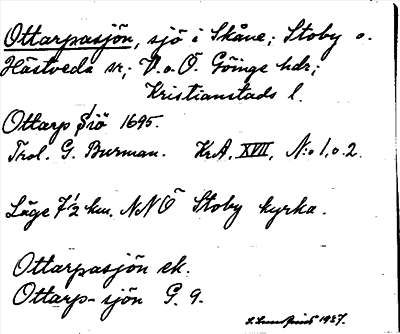 Ottarpasjön, sjö i Skåne; Stoby o.
Hästveda sr; V. o. Ö. Göinge hdr;
Kristianstads l.
Ottarp Siö 1695.
Trol. G. Burman. KrA, XVII, N:o 1, o. 2.
Läge 7 1/2 km. NNÖ Stoby kyrka.
Ottarpasjön ek.
Ottarp-sjön G. 9.
1927.